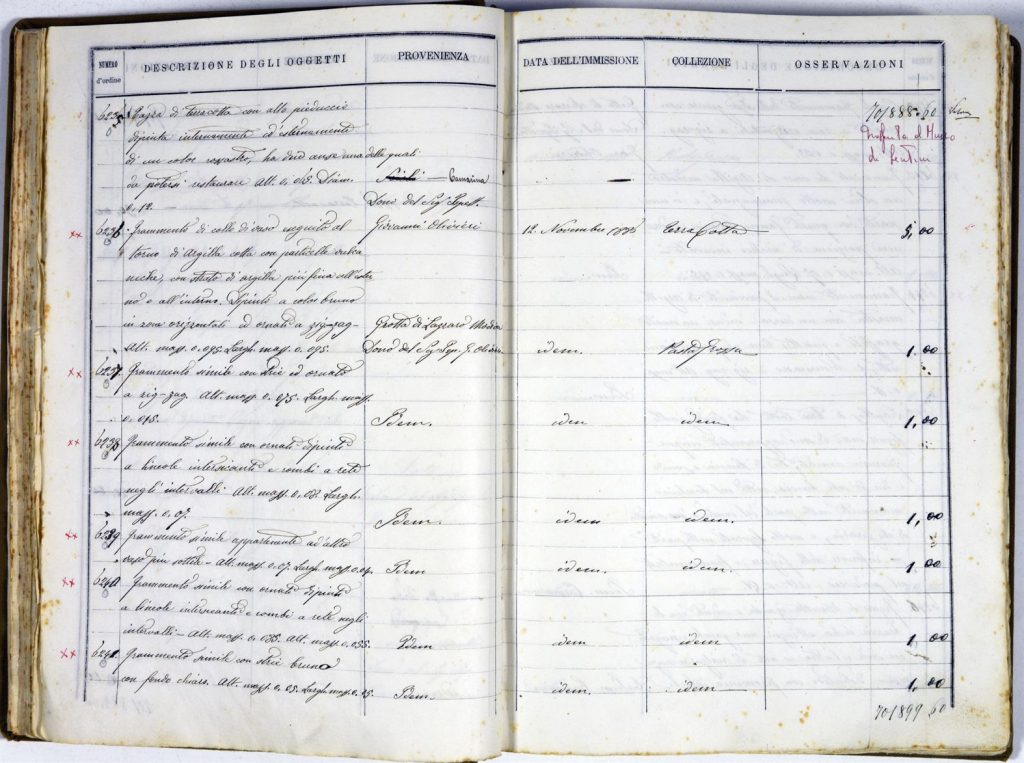 NUMERO d'ordine
DESCRIZIONE DEGLI OGGETTI
PROVENIENZA
DATA DELL'IMMISSIONE
COLLEZIONE
OSSERVAZIONI
70/888.60
6235 di terracotta con alto pieduccio
dipinta internamente ed esternamente
di un color rossastro, ha due anse una delle quali
da potersi restaurare Alt. 0,
0.12.
Camarina
Dono del Sig.
Giovanni Olivieri
12 Novembre
Terra Cotta
5,00
al Museo
di Lentini
xx 6236 Frammento di collo di vaso eseguito al
torno di argilla cotta con particelle vulca
niche, con strato di argilla più fina all'ester
no e all'interno. Dipinto a color bruno
in zone orizzontali ed ornati a zig-zag-
Alt. mass. 0.095. Largh. mass. 0.095.
Grotta di Lazzaro Modica
Dono del Sig. G. Olivieri
idem.
Pasta Grossa
1.00
xx 6237 Frammento simile con strie ed ornato
a zig-zag. Alt. mass. 0.075. Largh. mass.
0.015. Idem. idem idem. 1,00
xx 6238 Frammento simile con ornati dipinti
a lineole intersicanti e rombi a rete
negli intervalli Alt. mass. 0.08. Largh.
mass. 0.07. Idem. idem idem. 1,00
xx 6239 Frammento simile appartenente ad altro
vaso più sottile - Alt. mass. 0.07. Largh. mass. 0.04. Idem idem. idem. 1.00
xx 6240 Frammento simile con ornati dipinti
a lineole intersicanti e rombi a rete negli
intervalli - Alt. mass. 0.035. Alt. mass. 0.055. Idem idem idem 1.00
xx 6241 Frammento simile con strie bruno
con fondo chiaro. Alt. mass. 0.05. Largh. mass. 0.05. Idem. idem. idem 1,00
70/899.60